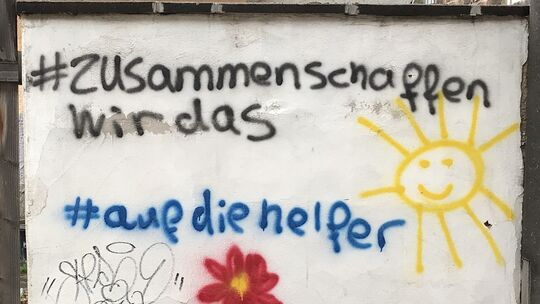 #zusammenschaffen
wir das
#aufdiehelfer